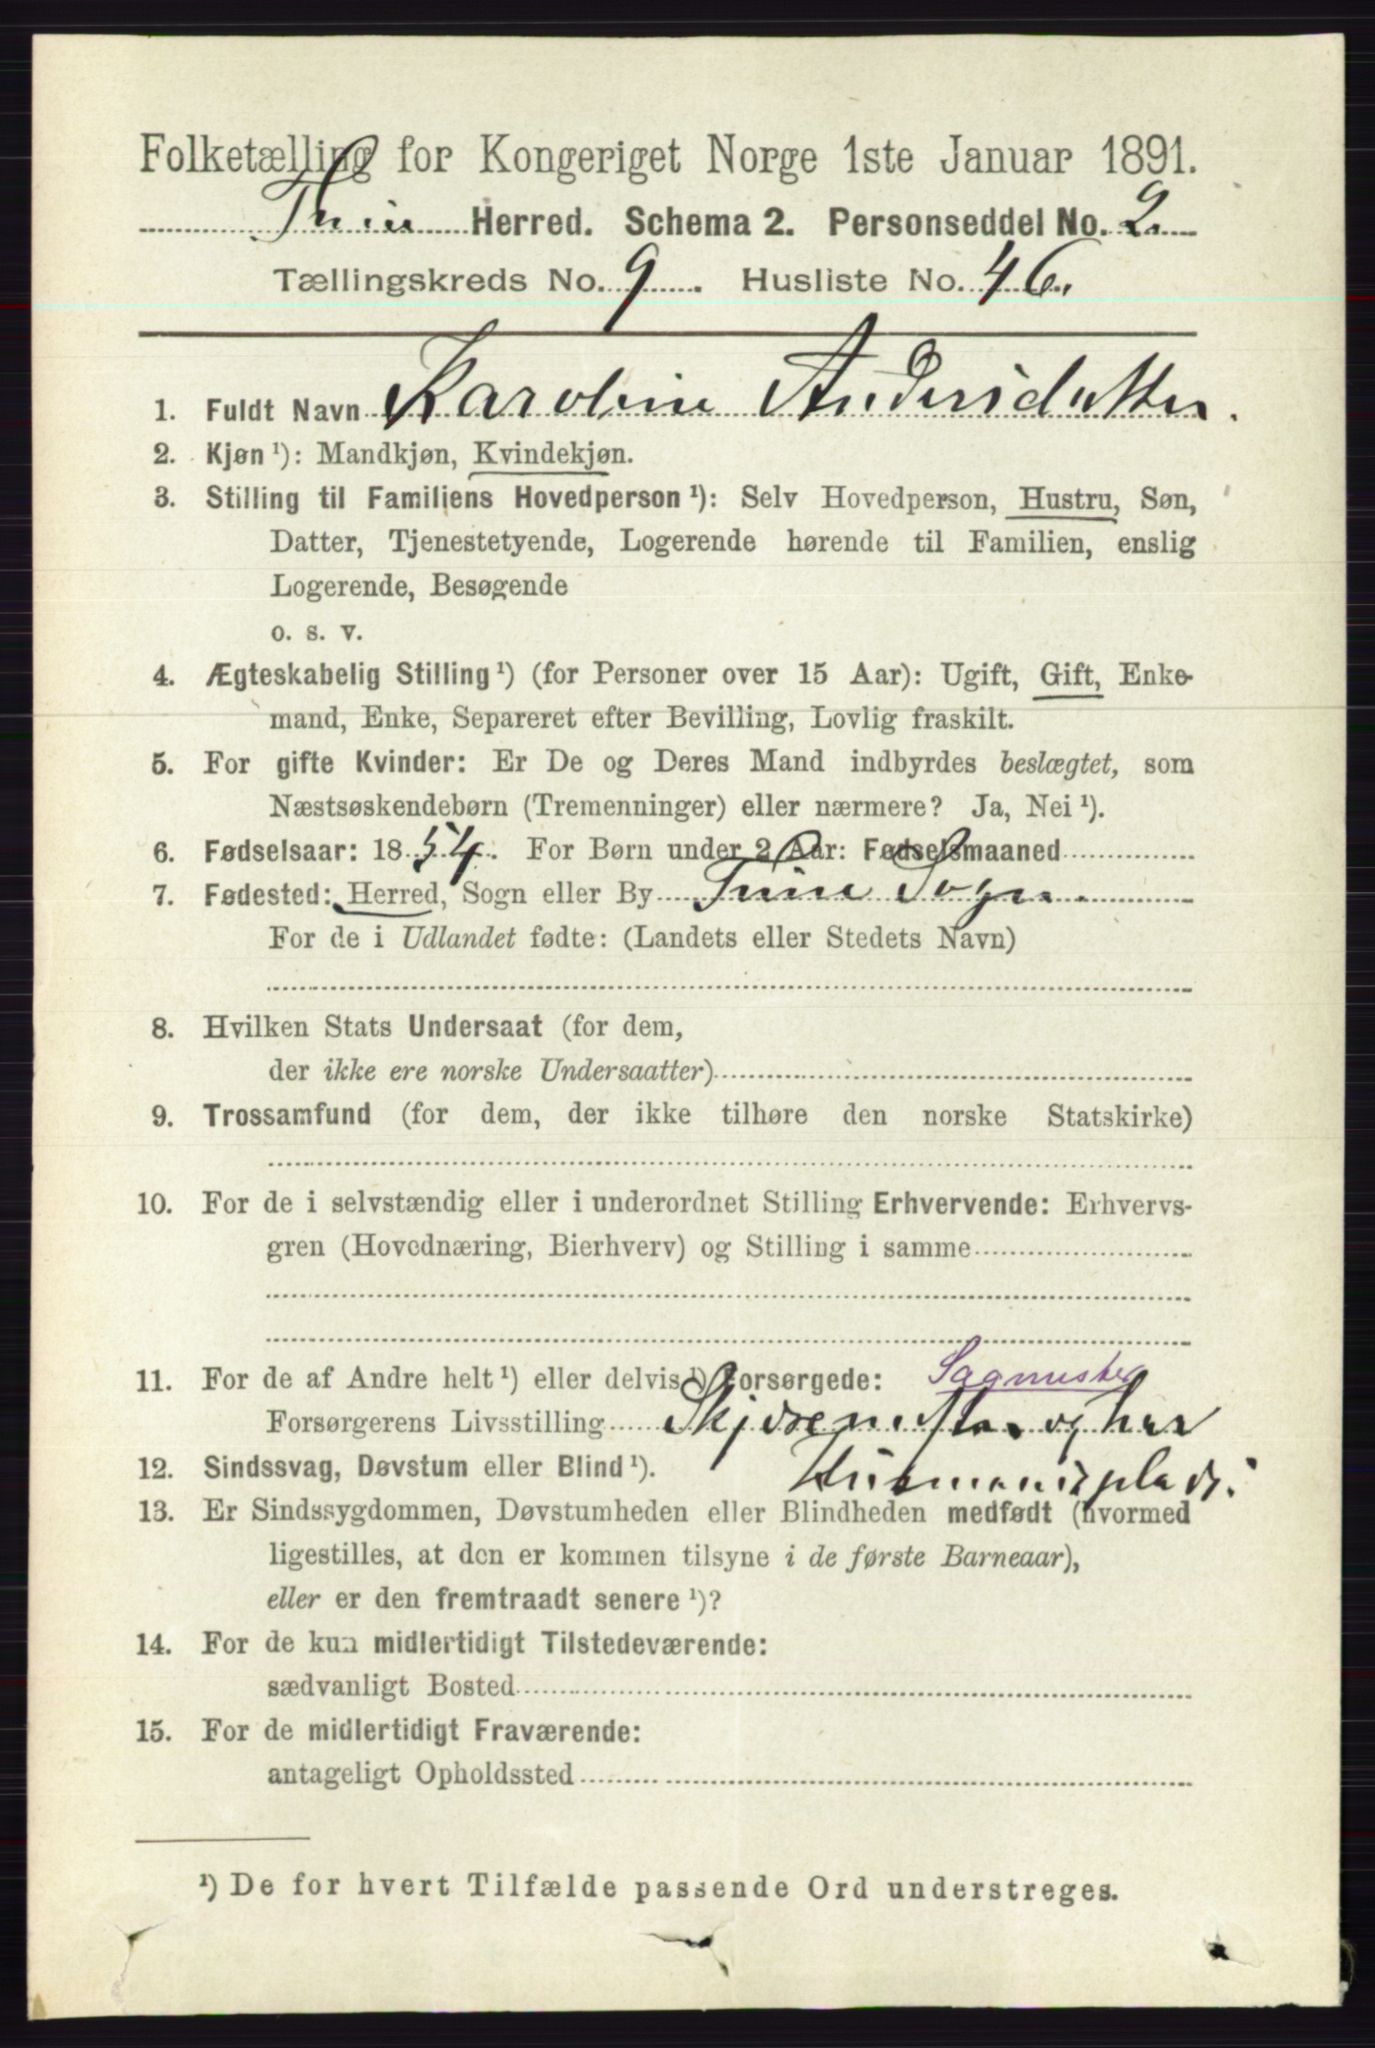 Folketælling for Kongeriget Norge 1ste Januar 1891.
Thune Herred. Schema 2. Personseddel No. 2.
Tællingskreds No. 9. Husliste No. 46.
1. Fuldt Navn Karoline Andersdatter.
2. Kjøn ¹): Mandkjøn, Kvindekjøn.
3. Stilling til Familiens Hovedperson ¹): Selv Hovedperson, Hustru, Søn,
Datter, Tjenestetyende, Logerende hørende til Familien, enslig
Logerende, Besøgende
o. s. v.
4. Ægteskabelig Stilling ¹) (for Personer over 15 Aar): Ugift, Gift, Enke-
mand, Enke, Separeret efter Bevilling, Lovlig fraskilt.
5. For gifte Kvinder: Er De og Deres Mand indbyrdes beslægtet, som
Næstsøskendebørn (Tremenninger) eller nærmere? Ja, Nei ¹).
6. Fødselsaar: 1854. For Børn under 2 Aar: Fødselsmaaned
7. Fødested: Herred, Sogn eller By Tune Sogn.
For de i Udlandet fødte: (Landets eller Stedets Navn)
8. Hvilken Stats Undersaat (for dem,
der ikke ere norske Undersaatter)
9. Trossamfund (for dem, der ikke tilhøre den norske Statskirke)
10. For de i selvstændig eller i underordnet Stilling Erhvervende: Erhvervs-
gren (Hovednæring, Bierhverv) og Stilling i samme
11. For de af Andre helt ¹) eller delvis ¹) Forsørgede: Sagmester
Forsørgerens Livsstilling Skjæremester og har
12. Sindssvag, Døvstum eller Blind ¹). Husmandsplads.
13. Er Sindssygdommen, Døvstumheden eller Blindheden medfødt (hvormed
ligestilles, at den er kommen tilsyne i de første Barneaar),
eller er den fremtraadt senere ¹)?
14. For de kun midlertidigt Tilstedeværende:
sædvanligt Bosted
15. For de midlertidigt Fraværende:
antageligt Opholdssted
¹) De for hvert Tilfælde passende Ord understreges.